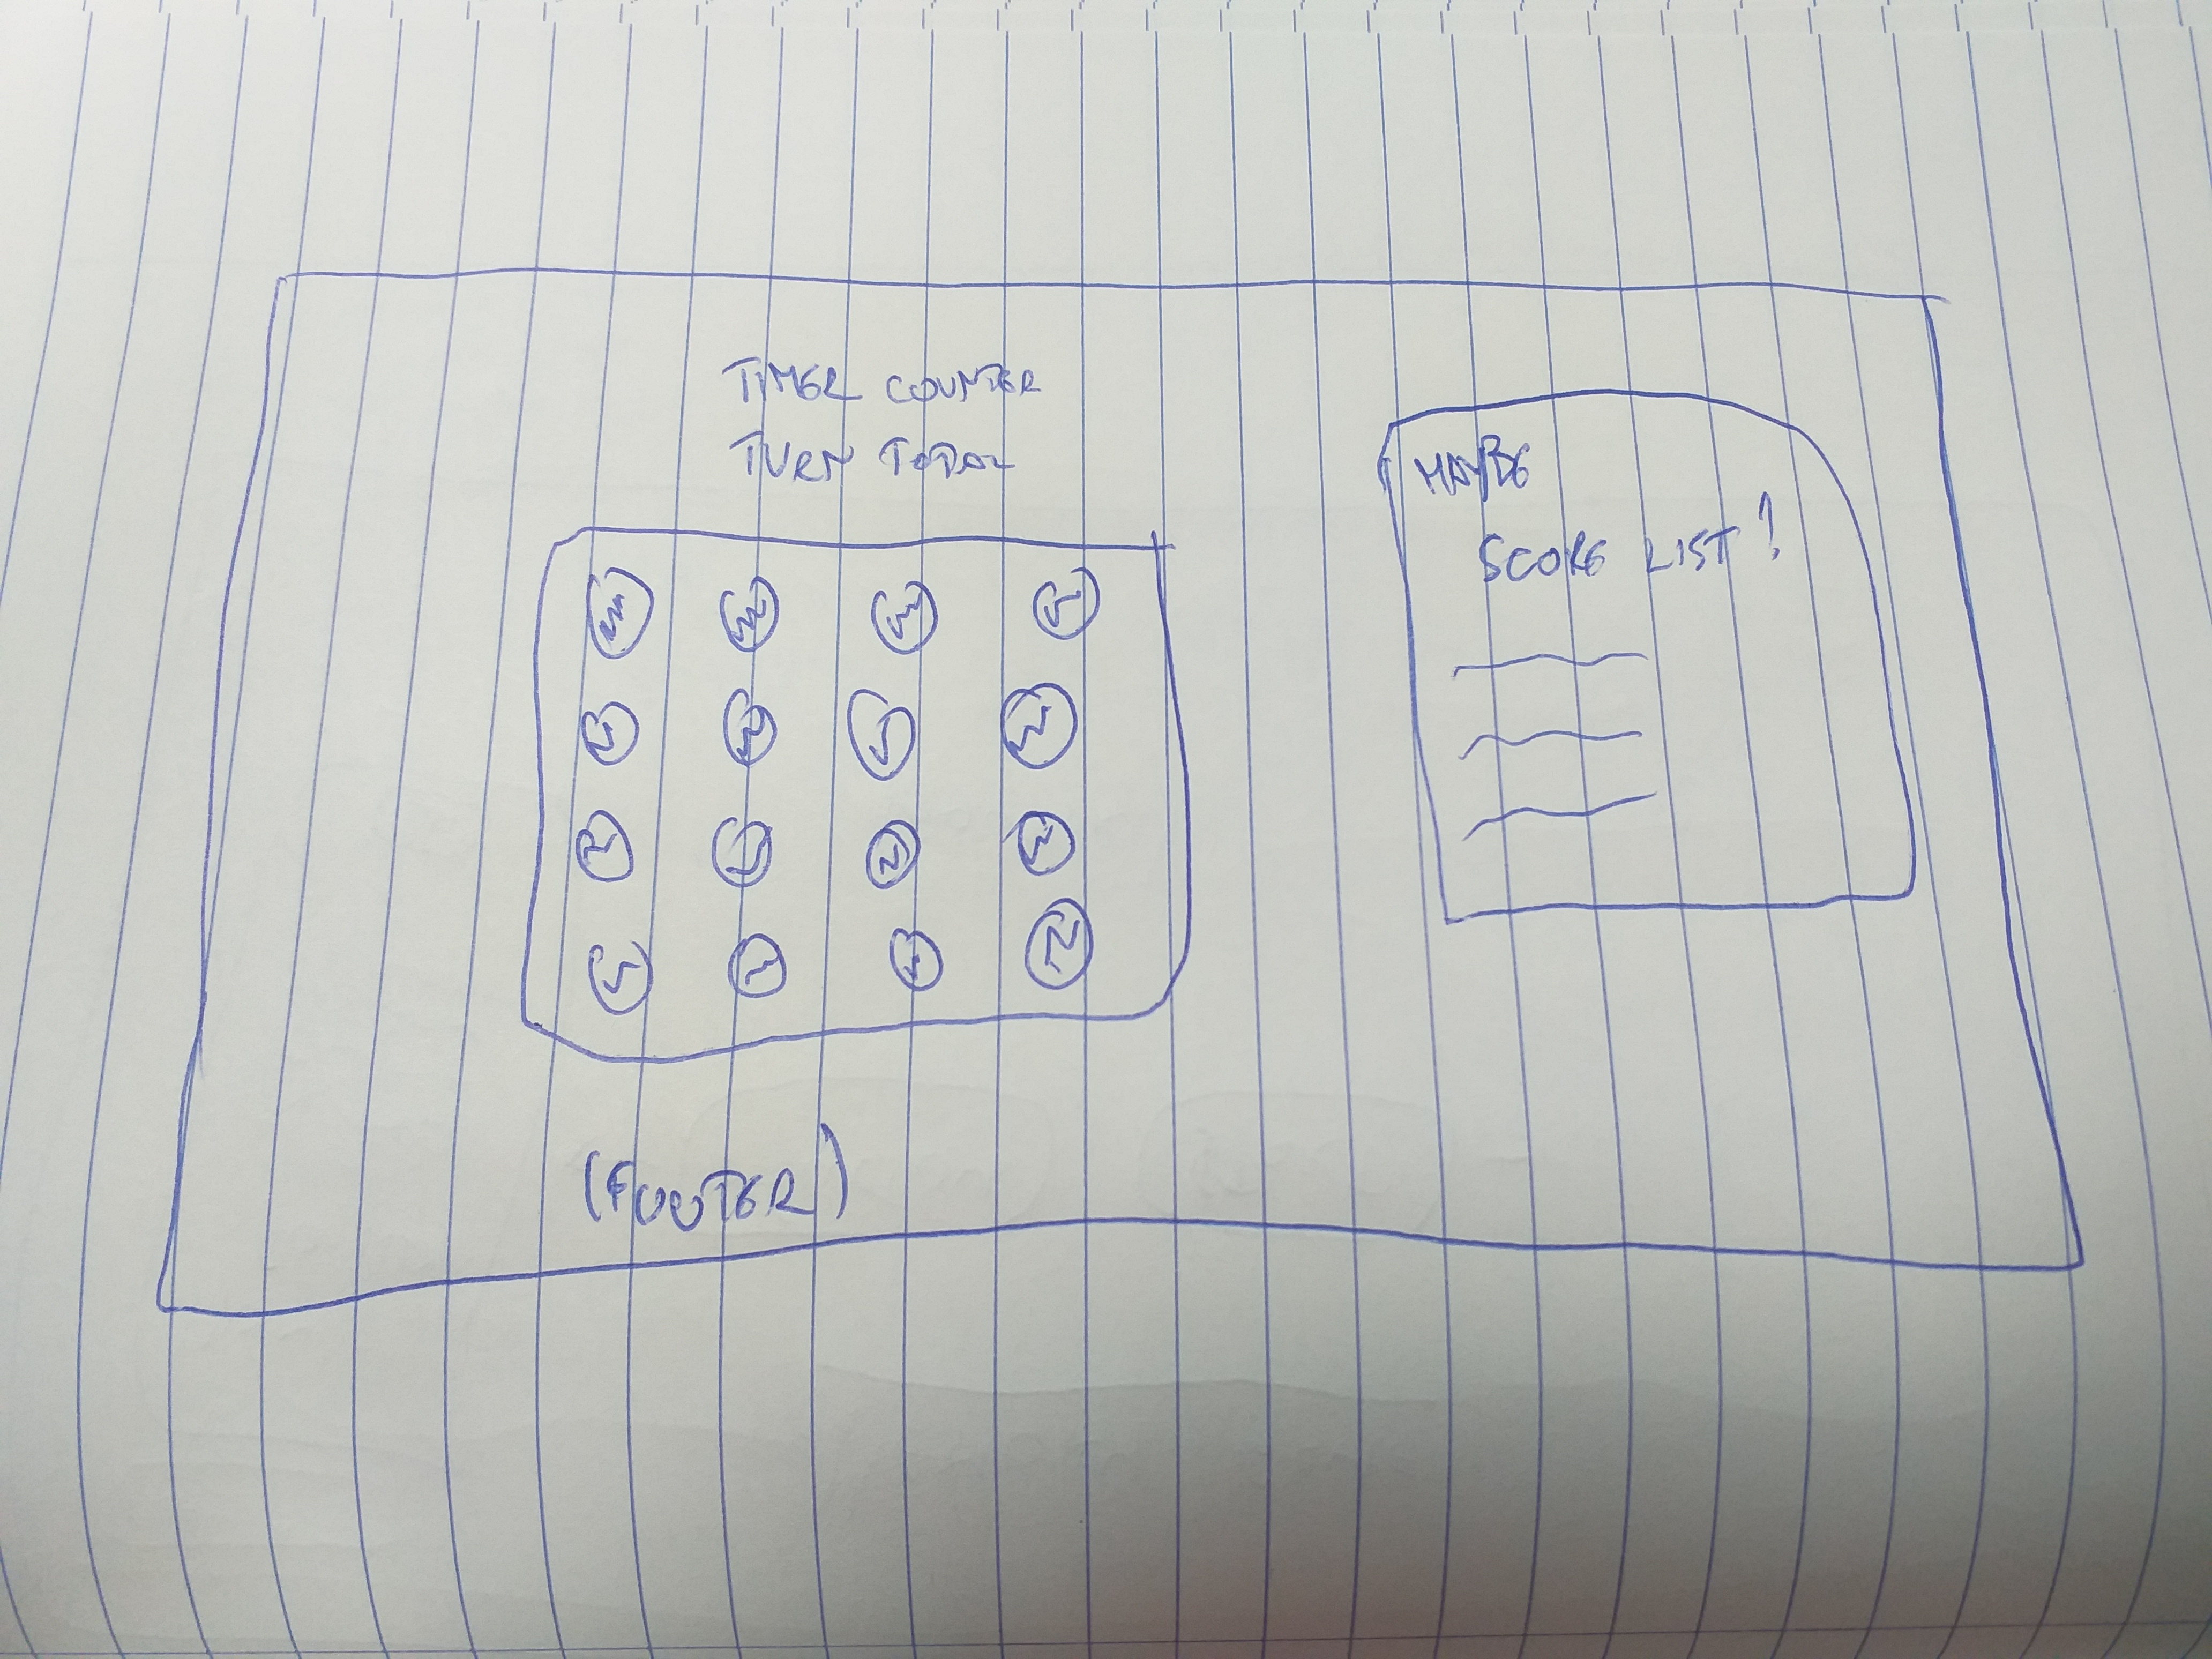 TIMER COUNTER
TURN TOTAL
MAYBE
SCORE LIST?
(FOOTER)